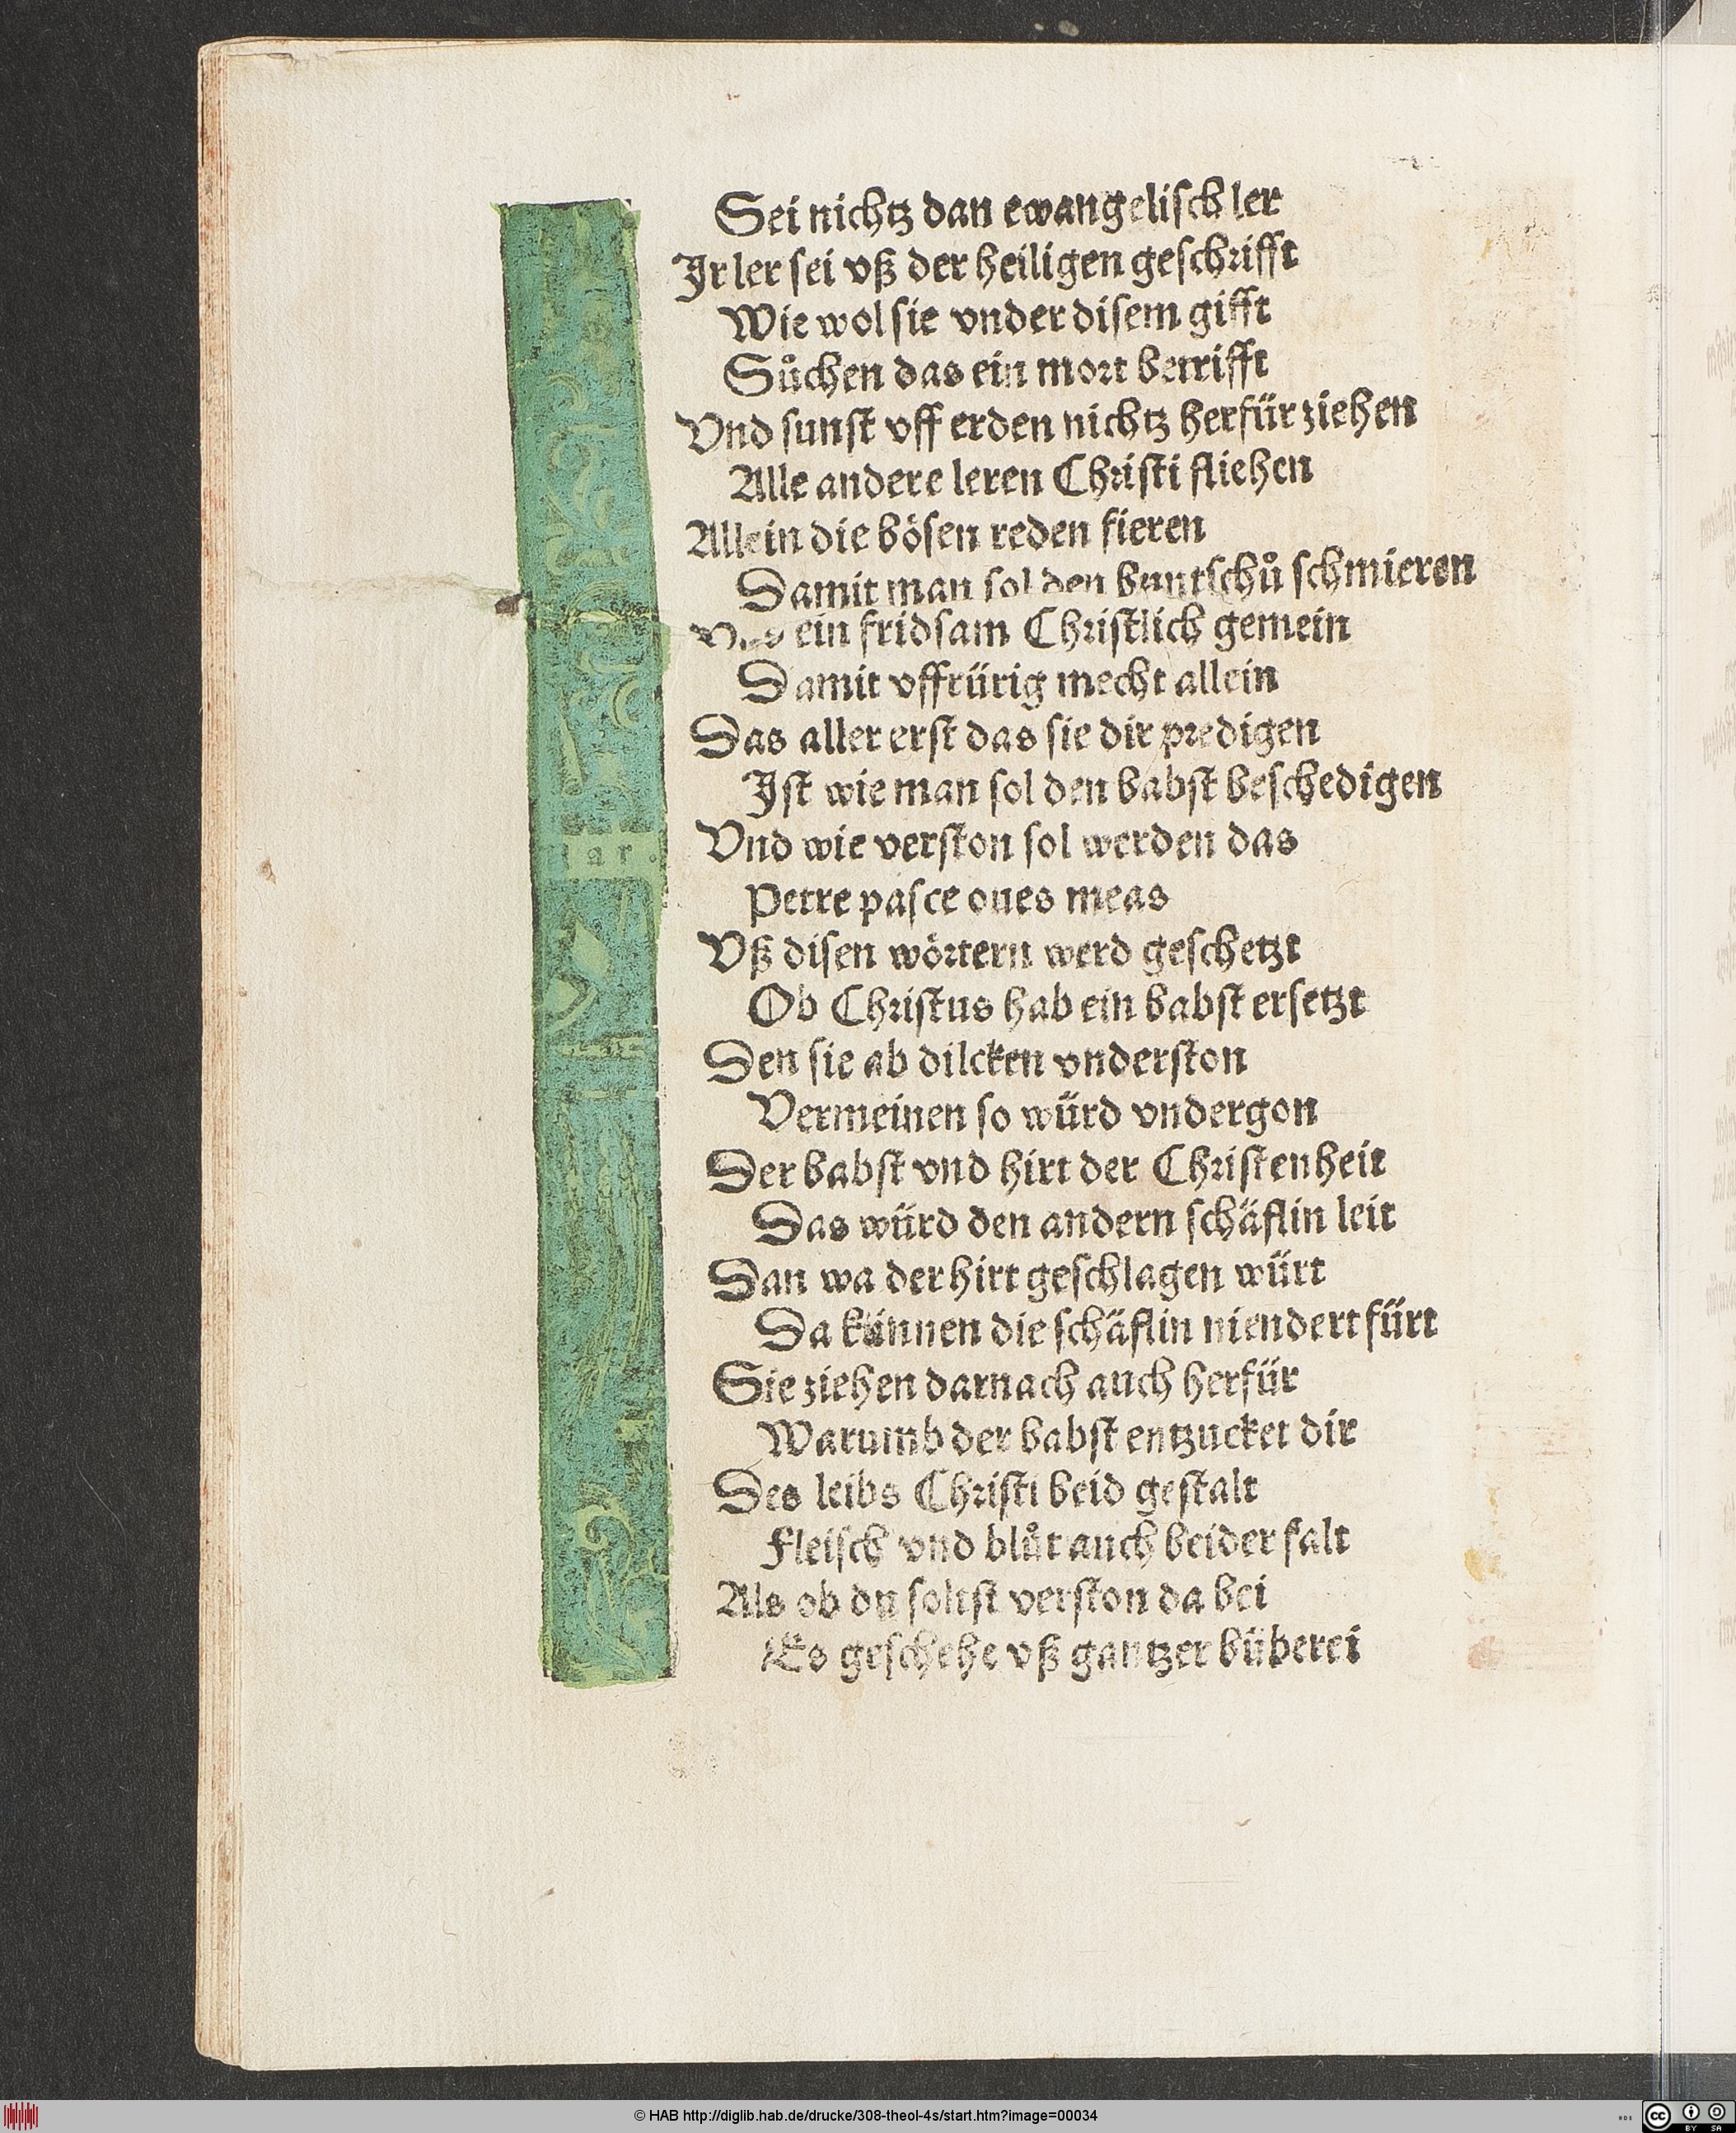 Sei nichtz dan ewangelisch ler
Ir ler sei vß der heiligen geschrifft
Wie wol sie vnder disem gifft
Sůchen das ein mort betrifft
Vnd sunst vff erden nichtz herfür ziehen
Alle andere leren Christi fliehen
Allein die bösen reden fieren
Damit man sol den buntschů schmieren
ein fridsam Christlich gemein
Damit vffrürig mecht allein
Das aller erst das sie dir predigen
Ist wie man sol den babst beschedigen
Vnd wie verston sol werden das
iar.
Petre pasce oues meas
Vß disen wörtern werd geschetzt
Ob Christus hab ein babst ersetzt
Den sie ab dilcken vnderston
Vermeinen so würd vndergon
Der babst vnd hirt der Christenheit
Das würd den andern schäflin leit
Dan wa der hirt geschlagen würt
Da künnen die schäflin niendert fürt
Sie ziehen darnach auch herfür
Warumb der babst entzucket dir
Des leibs Christi beid gestalt
Fleisch vnd blůt auch beider falt
Als ob du soltst verston da bei
Es geschehe vß gantzer büberei
© HAB http://diglib.hab.de/drucke/308-theol-4s/start.htm?image=00034
cc
BY SA